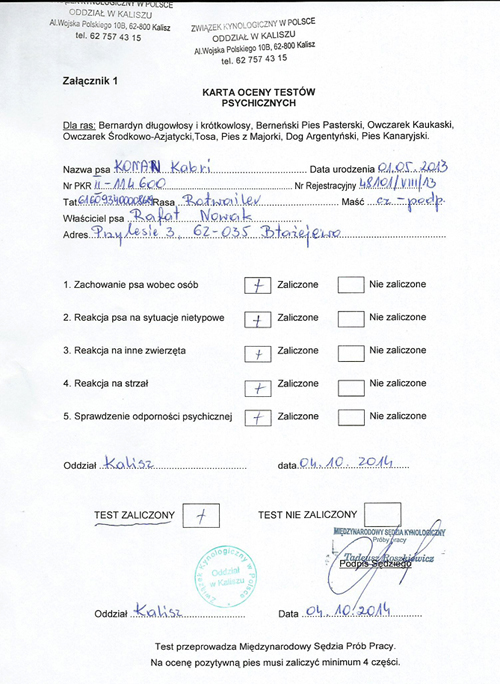 ZWIĄZEK KYNOLOGICZNY W POLSCE
ODDZIAŁ W KALISZU
Al.Wojska Polskiego 10B, 62-800 Kalisz
tel. 62 757 43 15
ZWIĄZEK KYNOLOGICZNY W POLSCE
ODDZIAŁ W KALISZU
Al.Wojska Polskiego 10B, 62-800 Kalisz
tel. 62 757 43 15
Załącznik 1
KARTA OCENY TESTÓW
PSYCHICZNYCH
Dla ras: Bernardyn długowłosy i krótkowłosy, Berneński Pies Pasterski, Owczarek Kaukaski,
Owczarek Środkowo-Azjatycki,Tosa, Pies z Majorki, Dog Argentyński, Pies Kanaryjski.
Nazwa psa KOMAN Kabri Data urodzenia 01.05.2013
Nr PKR II-114600 Nr Rejestracyjny 48101/VIII/13
Tat. Rasa Rotwailer Maść cz-podp.
Właściciel psa Rafał Nowak
Adres Przylesie 3, 62-035 Błażejewo
1. Zachowanie psa wobec osób + Zaliczone Nie zaliczone
2. Reakcja psa na sytuacje nietypowe + Zaliczone Nie zaliczone
3. Reakcja na inne zwierzęta + Zaliczone Nie zaliczone
4. Reakcja na strzał + Zaliczone Nie zaliczone
5. Sprawdzenie odporności psychicznej + Zaliczone Nie zaliczone
Oddział Kalisz data 04.10.2014
TEST ZALICZONY + TEST NIE ZALICZONY
MIĘDZYNARODOWY SĘDZIA KYNOLOGICZNY
Próby Pracy
Tadeusz Roszkiewicz
Podpis Sędziego
Związek Kynologiczny w Polsce
Oddział
w Kaliszu
Oddział Kalisz Data 04.10.2014
Test przeprowadza Międzynarodowy Sędzia Prób Pracy.
Na ocenę pozytywną pies musi zaliczyć minimum 4 części.